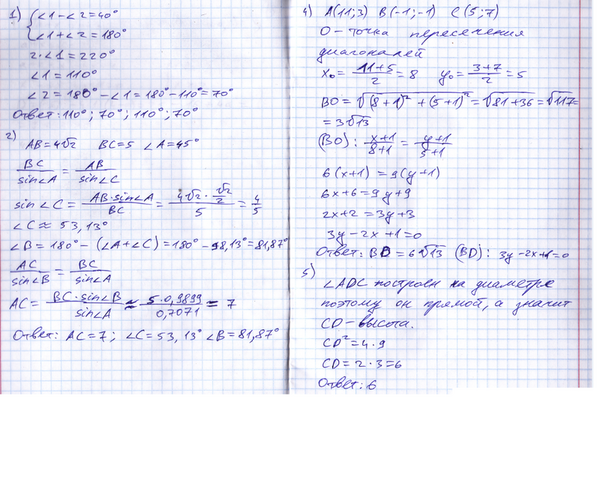 1) {∠1-∠2=40°
∠1+∠2=180°
2·∠1=220°
∠1=110°
∠2=180°-∠1=180°-110°=70°
Ответ: 110°; 70°; 110°; 70°
2)
AB=4√2 BC=5 ∠A=45°
BC/sin∠A = AB/sin∠C
sin∠C = AB·sin∠A/BC = 4√2·√2/2/5 = 4/5
∠C ≈ 53,13°
∠B=180°-(∠A+∠C)=180°-98,13°=81,87°
AC/sin∠B = BC/sin∠A
AC = BC·sin∠B/sin∠A ≈ 5·0,9899/0,7071 = 7
Ответ: AC=7; ∠C=53,13° ∠B=81,87°
4) A(11;3) B(-1;-1) C(5;7)
O-точка пересечения
диагоналей
x₀ = 11+5/2 = 8 y₀ = 3+7/2 = 5
BO = √(8+1)²+(5+1)² = √81+36 = √117 =
= 3√13
(BO): x+1/8+1 = y+1/5+1
6(x+1)=9(y+1)
6x+6=9y+9
2x+2=3y+3
3y-2x+1=0
Ответ: BD=6√13 (BD): 3y-2x+1=0
5)
∠ADC построен на диаметре
поэтому он прямой, а значит
CD-высота.
CD²=4·9
CD=2·3=6
Ответ: 6